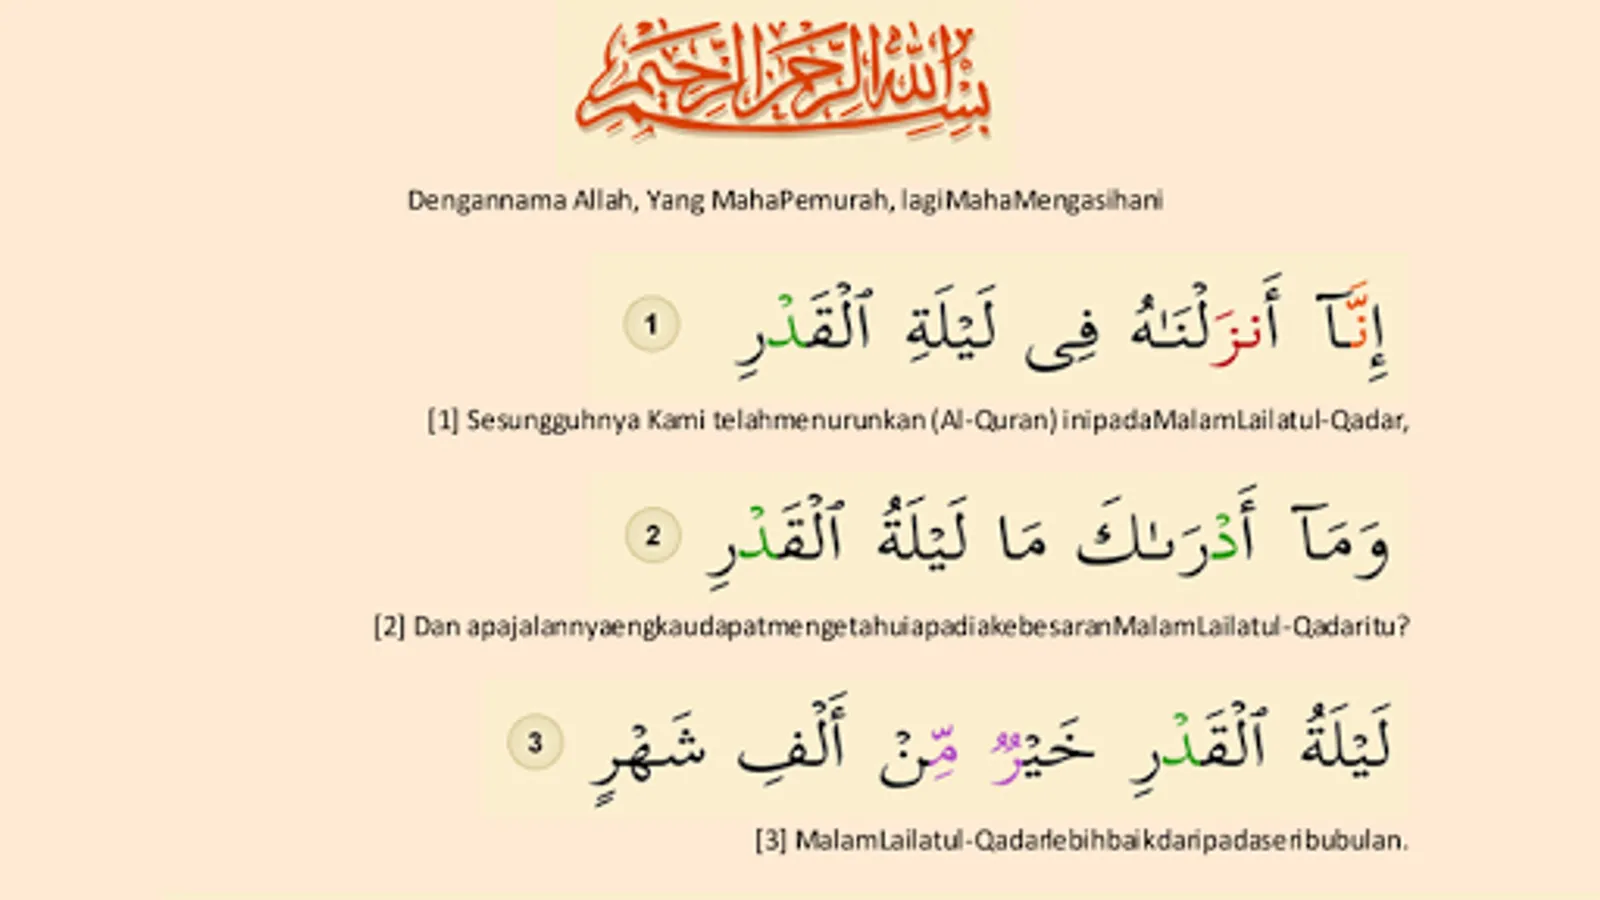 بِسْمِ اللَّهِ الرَّحْمَٰنِ الرَّحِيمِ
Dengannama Allah, Yang MahaPemurah, lagiMahaMengasihani
إِنَّآ أَنزَلْنَٰهُ فِى لَيْلَةِ ٱلْقَدْرِ 1
[1] Sesungguhnya Kami telahmenurunkan (Al-Quran) inipadaMalamLailatul-Qadar,
وَمَآ أَدْرَىٰكَ مَا لَيْلَةُ ٱلْقَدْرِ 2
[2] Dan apajalannyaengkaudapatmengetahuiapadiakebesaranMalamLailatul-Qadaritu?
لَيْلَةُ ٱلْقَدْرِ خَيْرٌ مِّنْ أَلْفِ شَهْرٍ 3
[3] MalamLailatul-Qadarlebihbaikdaripadaseribubulan.